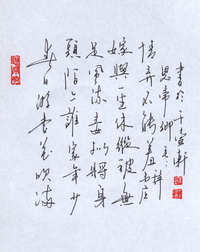 春日游杏花吹满
頭陌上誰家年少
足風流妾拟將身
嫁與一生休縱被無
情弃不能羞韦庄
思帝鄉
書於壺軒